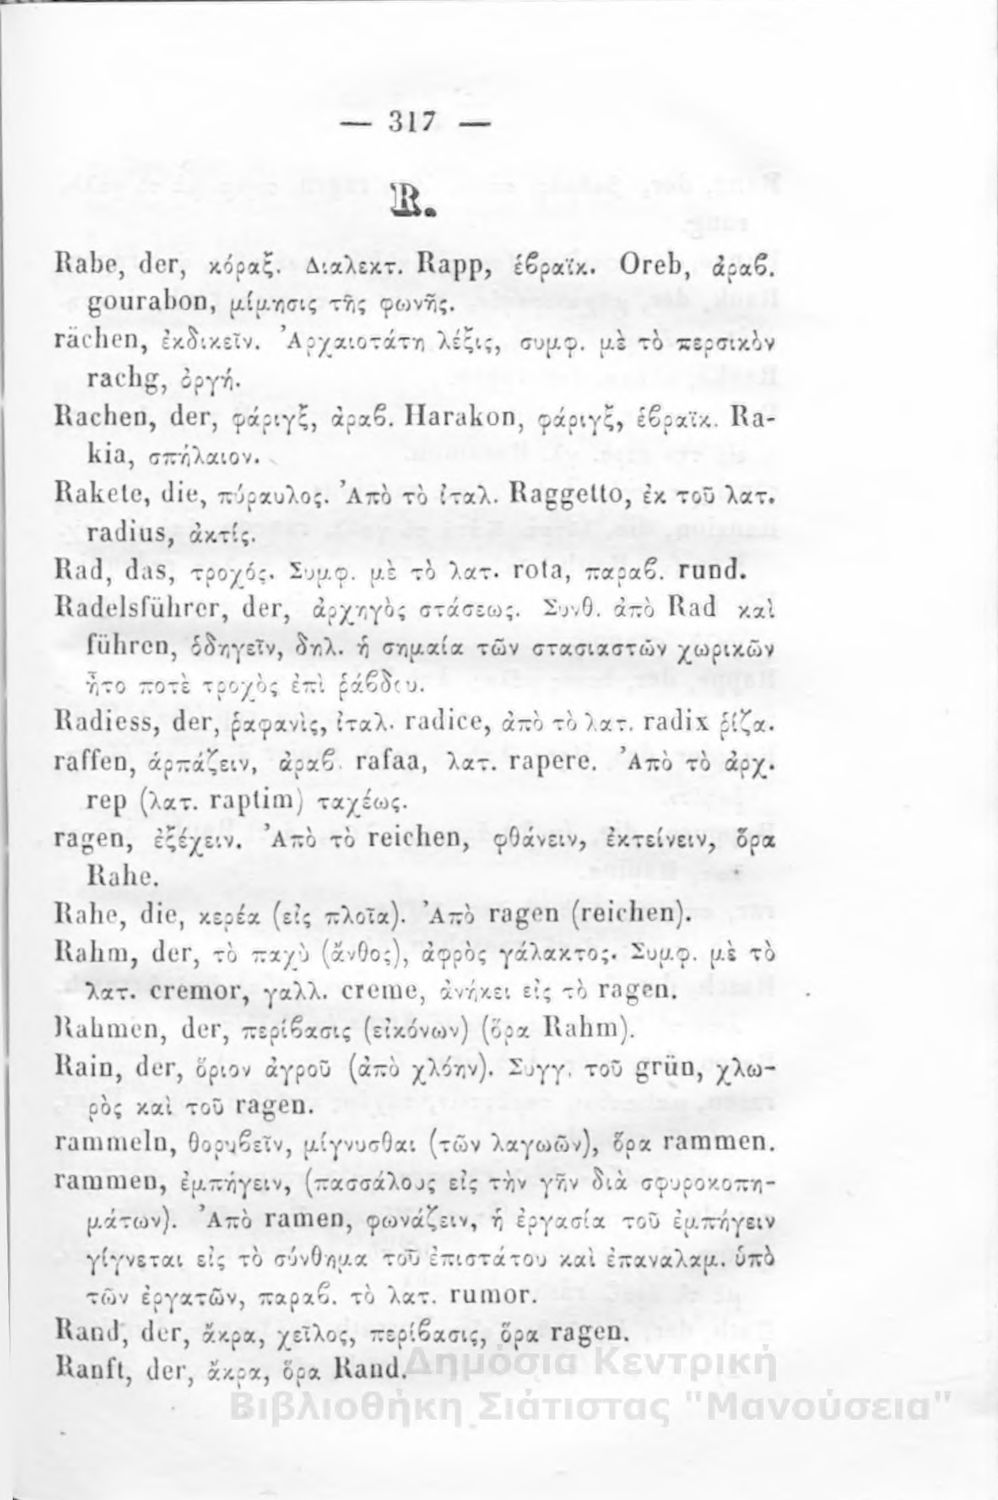 — 317 —
R.
Rabe, der, κόραξ. Διαλεκτ. Rapp, ἑβραϊκ. Oreb, ἀραβ.
gourabon, μίμησις τῆς φωνῆς.
rächen, ἐκδικεῖν. Ἀρχαιοτάτη λέξις, συμφ. μὲ τὸ περσικὸν
rachg, ὀργή.
Rachen, der, φάριγξ, ἀραβ. Harakon, φάριγξ, ἑβραϊκ. Ra-
kia, σπήλαιον.
Rakete, die, πύραυλος. Ἀπὸ τὸ ἰταλ. Raggetto, ἐκ τοῦ λατ.
radius, ἀκτίς.
Rad, das, τροχός. Συμφ. μὲ τὸ λατ. rota, παραβ. rund.
Radelsführer, der, ἀρχηγὸς στάσεως. Συνθ. ἀπὸ Rad καὶ
führen, ὁδηγεῖν, δηλ. ἡ σημαία τῶν στασιαστῶν χωρικῶν
ἦτο ποτὲ τροχὸς ἐπὶ ῥάβδου.
Radiess, der, ῥαφανὶς, ἰταλ. radice, ἀπὸ τὸ λατ. radix ῥίζα.
raffen, ἁρπάζειν, ἀραβ. rafaa, λατ. rapere. Ἀπὸ τὸ ἀρχ.
rep (λατ. raptim) ταχέως.
ragen, ἐξέχειν. Ἀπὸ τὸ reichen, φθάνειν, ἐκτείνειν, ὅρα
Rahe.
Rahe, die, κερέα (εἰς πλοῖα). Ἀπὸ ragen (reichen).
Rahm, der, τὸ παχὺ (ἄνθος), ἀφρὸς γάλακτος. Συμφ. μὲ τὸ
λατ. cremor, γαλλ. creme, ἀνήκει εἰς τὸ ragen.
Rahmen, der, περίβασις (εἰκόνων) (ὅρα Rahm).
Rain, der, ὅριον ἀγροῦ (ἀπὸ χλόην). Συγγ. τοῦ grün, χλω-
ρὸς καὶ τοῦ ragen.
rammeln, θορυβεῖν, μίγνυσθαι (τῶν λαγωῶν), ὅρα rammen.
rammen, ἐμπήγειν, (πασσάλους εἰς τὴν γῆν διὰ σφυροκοπη-
μάτων). Ἀπὸ ramen, φωνάζειν, ἡ ἐργασία τοῦ ἐμπήγειν
γίγνεται εἰς τὸ σύνθημα τοῦ ἐπιστάτου καὶ ἐπαναλαμ. ὑπὸ
τῶν ἐργατῶν, παραβ. τὸ λατ. rumor.
Rand, der, ἄκρα, χεῖλος, περίβασις, ὅρα ragen.
Ranft, der, ἄκρα, ὅρα Rand.
Δημόσια Κεντρική
Βιβλιοθήκη Σιάτιστας "Μανούσεια"